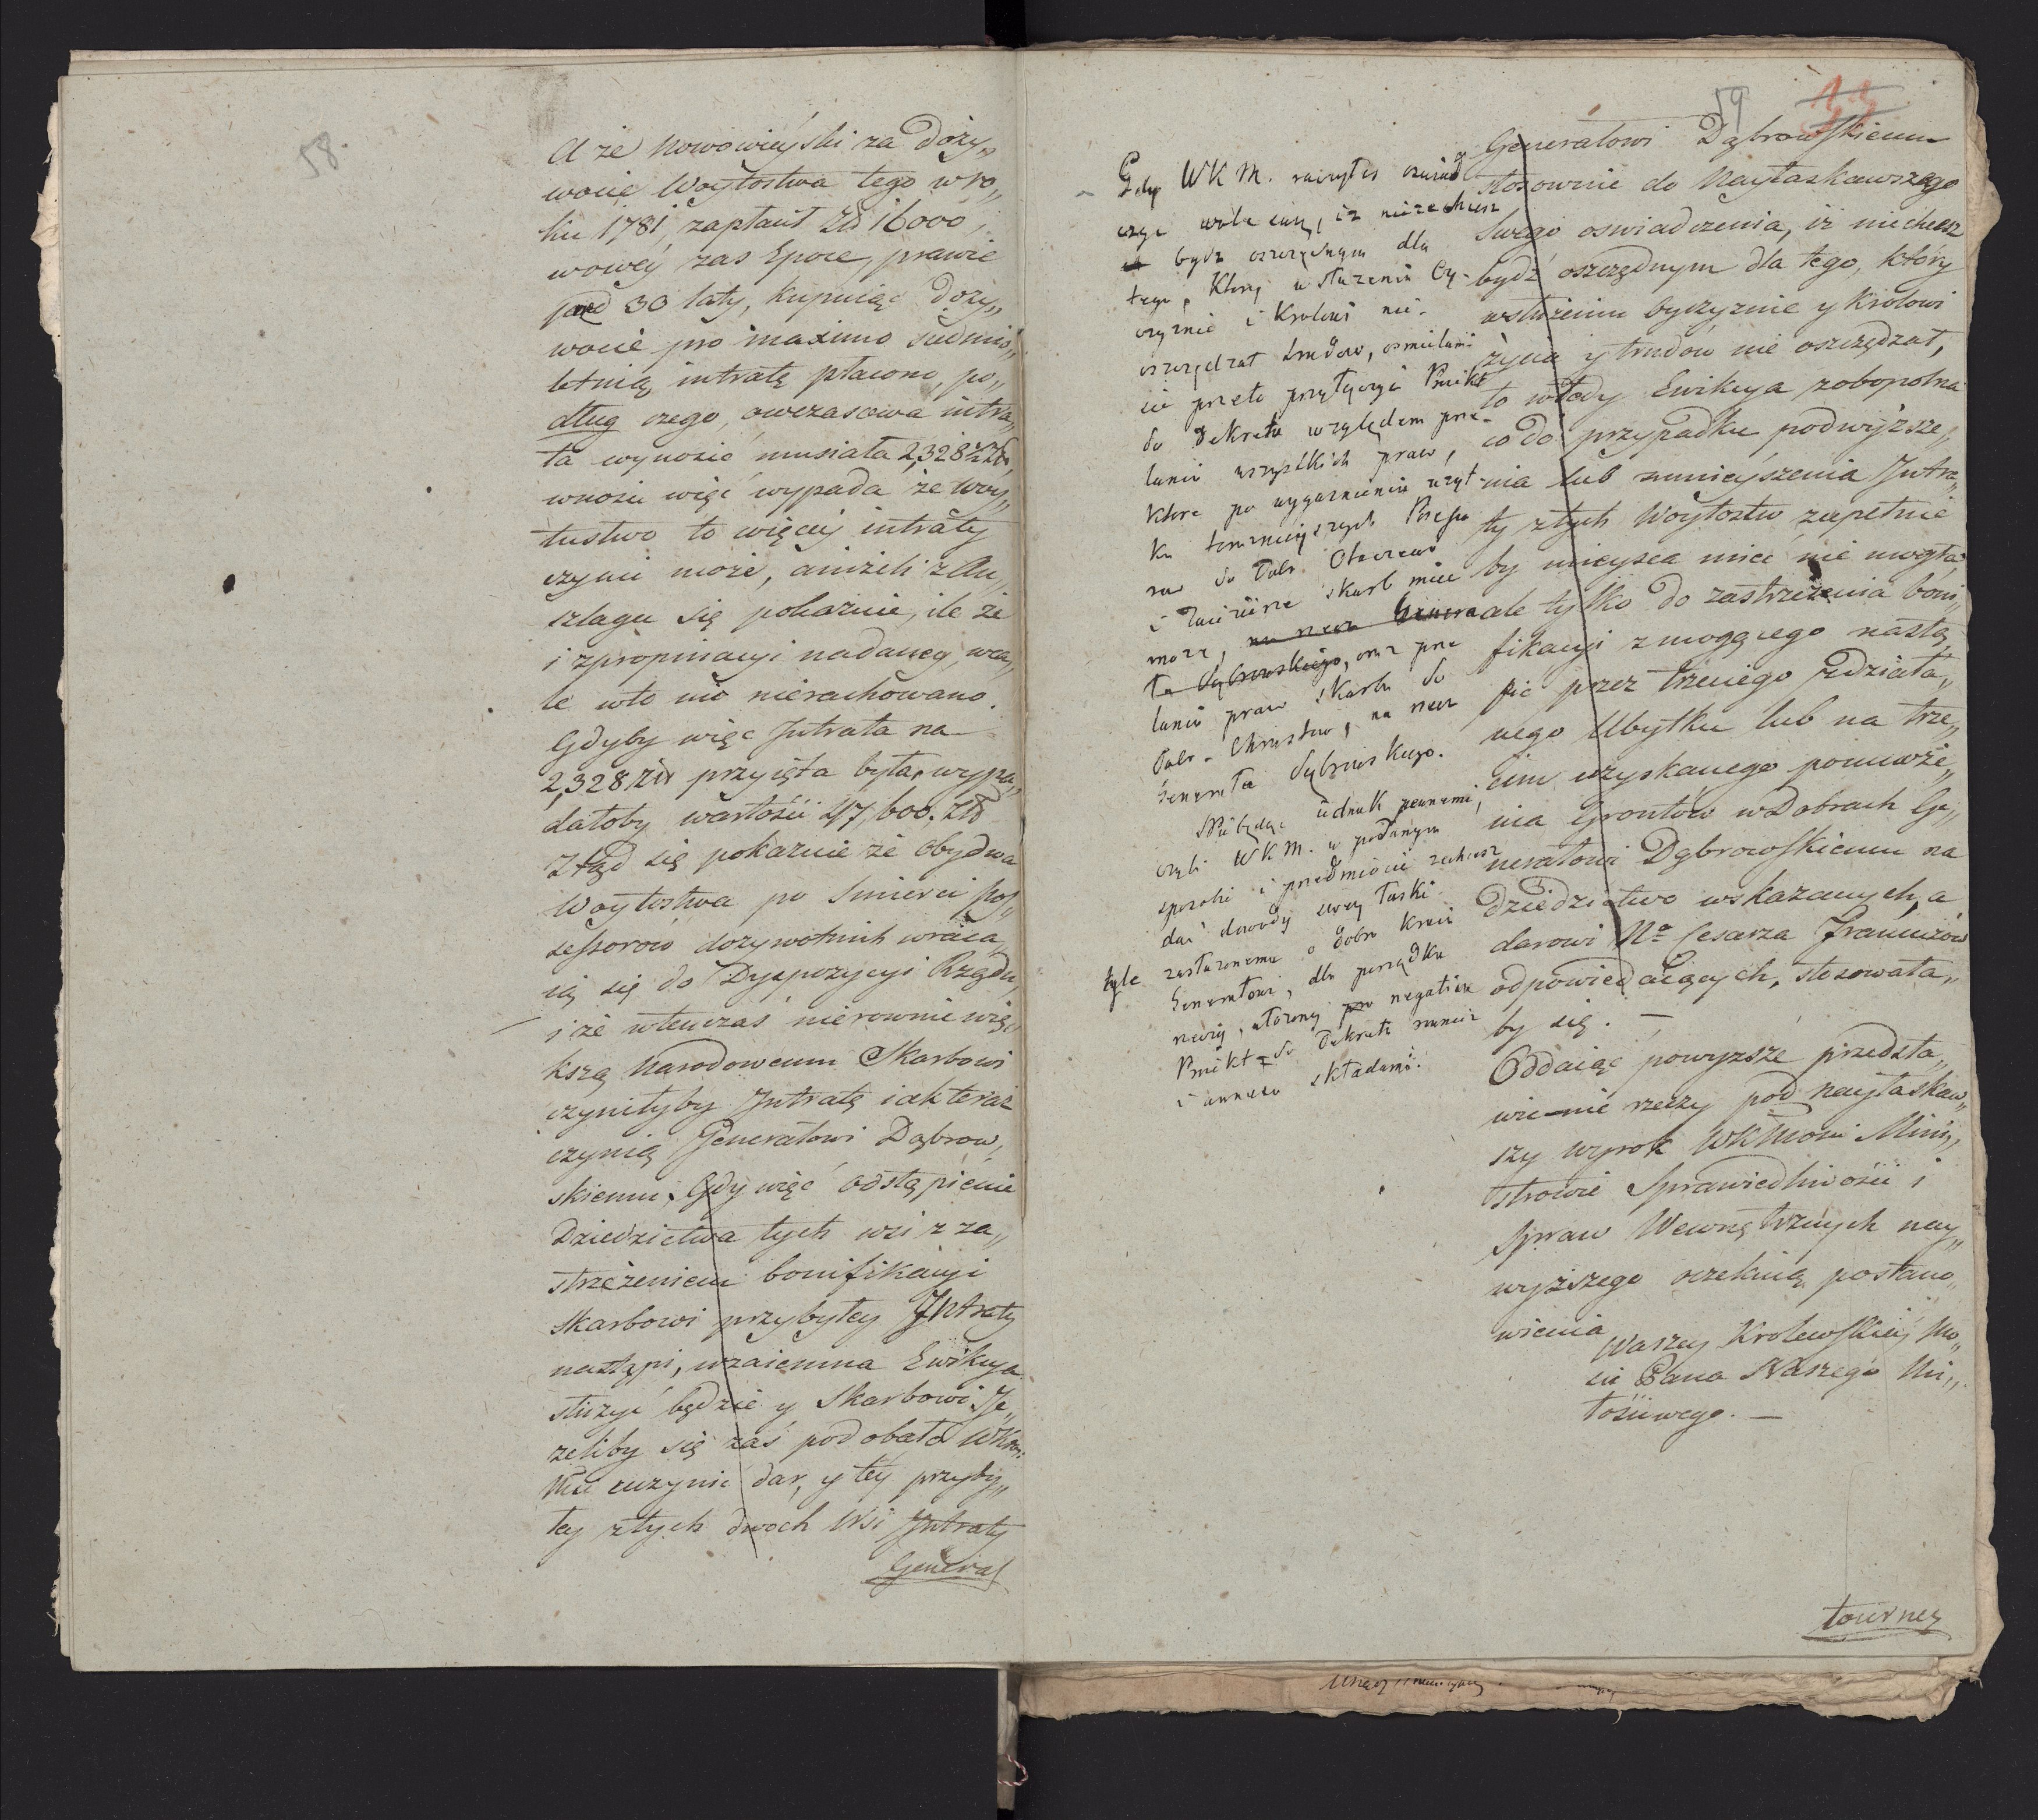 58.
A że Nowowieyski za Doży„
wocie Woytostwa tego w ro„
ku 1781 zapłacił Zł 16000,
wowey zas Epoce, prawie
pred 30 laty, kupuiąc doży„
wocie pro maximo siedmio„
letnią intratę płacono, po„
dług czego, owczasowa intra„
ta wynosić musiała 2,328 Zł,
wnosić więc wypada że Woy„
tustwo to więcey intraty
czynić może, aniżeli z An„
szlagu się pokazuie, ile że
i z propinacyi nadaney, wca„
le wto nic nierachowano.
Gdyby więc Jntrata na
2,328 Zł przyięta była, wypa„
dałoby wartości 47,600. Zł
Ztąd się pokazuie że Obydwa
Woytostwa po Smierci Pos„
sessorow dozywotnich wraca„
ią się do Dyspozycyi Rządu,
i że wtenczas nierownie wię„
kszą Narodowemu Skarbowi
czyniłyby Jntratę iak teraz
czynią Generałowi Dąbrow„
skiemu. Gdy więc odstąpienie
Dziedzictwa tych wsi z za„
strzeżeniem bonifikacyi
Skarbowi przybyłey Jntraty
nastąpi, wzaiemna Ewikcya
służyć będzie y Skarbowi. Je„
żeliby się zaś podobało WKr.
Mci uczynić dar, y tey przyby„
łey z tych dwoch Wsi Jntraty
Generał
59
Generałowi Dąbrowskiemu
stosownie do Nayłaskawszego
Swego oswiadczenia, iż niechcesz
bydź oszczędnym dla tego, który
w służeniu Oyczyznie y Krolowi
życia y trudów nie oszczędzał,
to wtedy Ewikcya zobopolna
co do przypadku podwyższe„
nia lub zmnieyszenia Jntra„
ty z tych Woytostw zupełnie
by mieysca mieć nie mogła,
ale tylko do zastrzeżenia boni„
fikacyi z mogącego nastą„
pić przez trzeciego zdziała„
nego Ubytku lub na trze„
cim uzyskanego pomnoże„
nia Grontów w Dobrach Ge„
nerałowi Dąbrowskiemu na
dziedzictwo wskazanych, a
darowi No Cesarza Francuzów
odpowiedaiących, stosowała„
by się. —
Oddaiąc powyzsze przedsta„
wienie rzeczy pod nayłaskaw„
szy wyrok WKMości Mini„
strowie Sprawiedliwości i
Spraw Wewnętrznych nay„
wyższego oczekuią postano„
wienia
Waszey Krolewskiey Mo„
ści Pana Naszego Mi„
łościwego. —
tournez
Gdy WKM. raczyłeś oświad
czyć wolę swą, iż niezechcesz
bydź oszczędnym dla
tego, ktory w służeniu Oy-
czyznie i Krolowi nie-
oszczędzał trudow, osmielamy
sie przeto przyłączyć Proiekt
do Dekretu względem prze-
lania wszystkich praw,
ktore po wygasnieniu użyt-
ku terazniejszych Posesso
row do Dobr
i skarb mieć
może, na rzecz Genera
ła Dąbrowskiego, oraz prze
lania praw skarbu do
Dobr Chrustowa, na rzecz
Generała Dąbrowskiego.
Nie będąc iednak pewnemi,
czyli WKM. w podanym
sposobie i przedmiocie zechcesz
dać dowody swey łaski
tyle zasłużonemu o dobro kraiu
Generałowi, dla porządku
rzeczy, ułożony pro negativa
Proiekt do Dekretu rownież
i składamy.